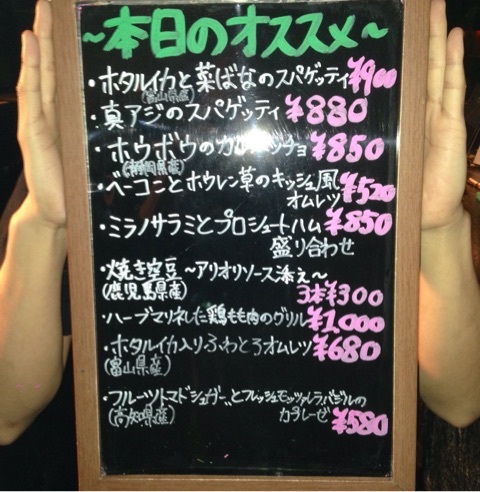 ～本日のオススメ～
・ホタルイカと菜ばなのスパゲッティ ¥900
(富山県産)
・真アジのスパゲッティ ¥880
・ホウボウのカルパッチョ ¥850
(静岡県産)
・ベーコンとホウレン草のキッシュ風
オムレツ ¥520
・ミラノサラミとプロシュートハム ¥850
盛り合わせ
・焼き空豆～アリオリソース添え～
(鹿児島県産) 3本¥300
・ハーブマリネした鶏もも肉のグリル ¥1,000
・ホタルイカ入りふわとろオムレツ ¥680
(富山県産)
・フルーツトマト"シュガー"とフレッシュモッツァレラ、バジルの
(高知県産) カプレーゼ ¥580